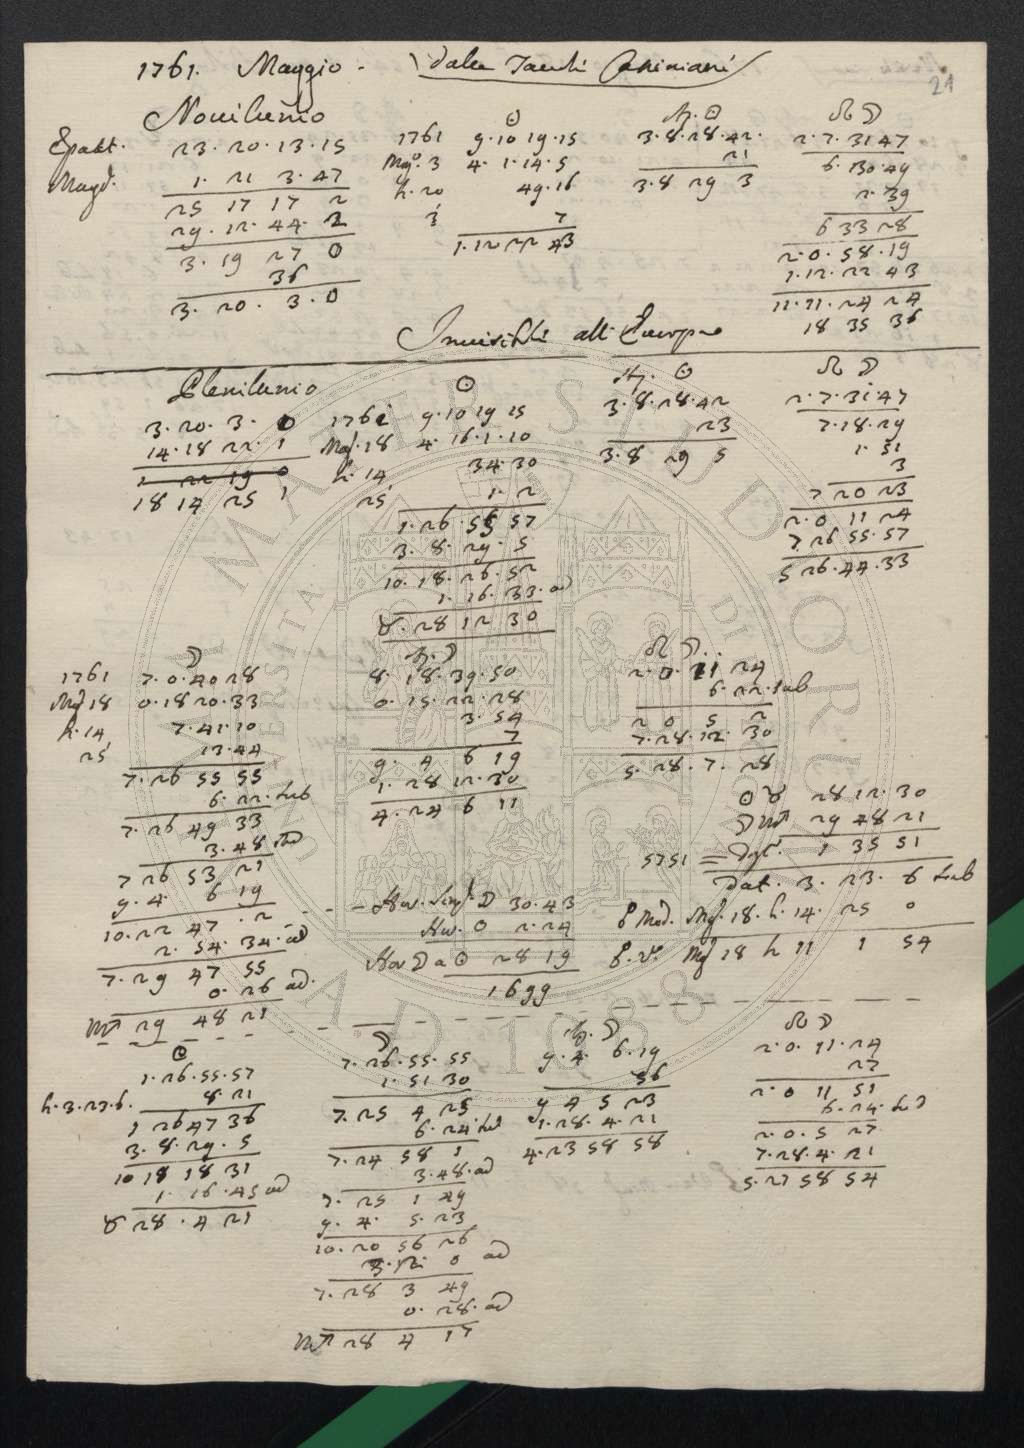 1761. Maggio - dalle Tavole Cassiniane
21
Novilunio
Epatt. 23. 20. 13. 15
Magg. 1. 21 3. 47
25 17 17 2
29. 12. 44. 2
3. 19 27 0
36
3. 20. 3. 0
☉
1761 9. 10 19. 15
Mag. 3 4. 1. 14. 5
h. 20 49. 16
3 7
1. 12 22 43
Ap. ☉
3. 8. 28. 42.
21
3. 8 29 3
☊ ☽
2. 7. 31 47
6. 30. 49
2. 39
6 33 28
2. 0. 58. 19
1. 12. 22 43
11. 11. 24 24
18 35 36
Invisibile all' Europa
Plenilunio
3. 20. 3. 0
14. 18 22. 1
18 14 25 1
☉
1761 9. 10 19 15
Mag. 18 4. 16. 1. 10
h. 14 34. 30
25 1. 2
1. 26 55 57
3. 8. 29. 5
10. 18. 26. 52
1. 16. 33. ad
♉. 28 12 30
Ap. ☉
3. 8. 28. 42
23
3. 8 29 5
☊ ☽
2. 7. 31. 47
7. 18. 29
1. 51
3
7 20 23
2. 0 11 24
7. 26 55. 57
5 26. 44. 33
☽
1761 7. 0. 40 28
Mag 18 0. 18 20. 33
h. 14 7. 41. 10
25 13. 44
7. 26 55 55
6. 22. sub
7. 26 49 33
3. 48 ad
7 26 53 21
9. 4. 6 19
10. 22 47. 2
2. 54. 34. ad
7. 29 47 55
0. 26 ad.
♏ 29 48 21
Ap. ☽
8. 18. 39. 50
0. 15. 22. 28
3. 54
7
9. 4 6 19
1. 28 12. 30
4. 24 6 11
☊ ☽.
2. 0. 11 24
6. 22. sub
2 0 5 2
7. 28. 12. 30
5. 28. 7. 28
☉ ♉ 28 12. 30
☽ ♏ 29 48 21
5751 = Diff. 1 35 51
Dat. 3. 23. 6 sub
Hor. ☽ 30. 43
Hor. ☉ 2. 24
Hor ☽ a ☉ 28 19
1699
Mag. 18. h. 14. 25 0
Mag 18 h 11 1 54
☉
1. 26. 55. 57
h. 3. 23. 6. 8. 21
1 26 47 36
3. 8. 29. 5
10 18 18 31
1. 16. 45 ad
♉ 28. 4 21
☽
7. 26. 55. 55
1. 51 30
7. 25 4 25
6. 24 sub
7. 24 58 1
3. 48. ad
7. 25 1 49
9. 4. 5. 23
10. 20 56 26
3. 12. 0 ad
7. 28 3 49
0. 28. ad
♏ 28 4 17
Ap. ☽
9. 4. 6. 19
56
9 4 5 23
1. 28. 4. 21
4. 23 58 58
☊ ☽
2. 0. 11. 24
27
2. 0 11 51
6. 24. sub
2. 0. 5 27
7. 28. 4. 21
5. 27 58 54
ALMA MATER STUDIORUM
UNIVERSITA DI
A.D. 1088